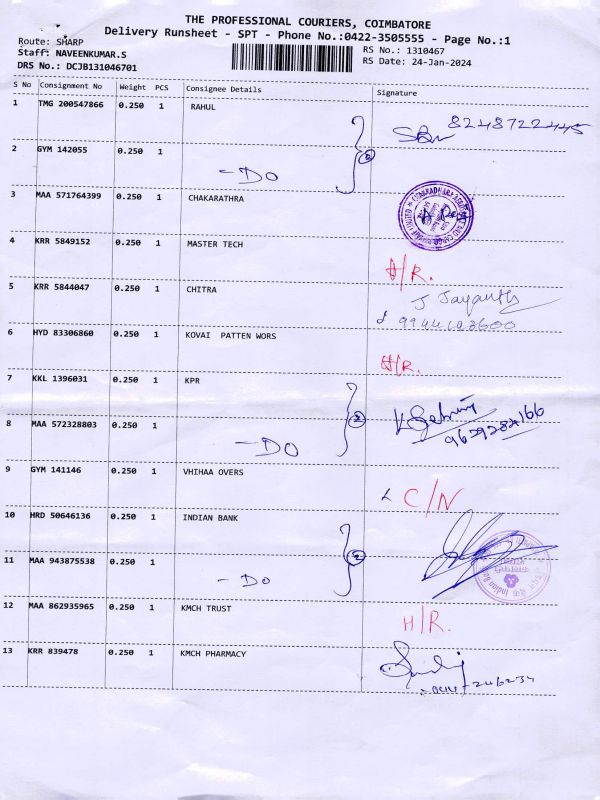 THE PROFESSIONAL COURIERS, COIMBATORE
Delivery Runsheet - SPT - Phone No.:0422-3505555 - Page No.:1
Route: SHARP
Staff: NAVEENKUMAR.S
DRS No.: DCJB131046701
RS No.: 1310467
RS Date: 24-Jan-2024
S No Consignment No Weight PCS Consignee Details Signature
1 TMG 200547866 0.250 1 RAHUL
8248722445
2 GYM 142055 0.250 1 -DO
2
3 MAA 571764399 0.250 1 CHAKARATHRA
4 KRR 5849152 0.250 1 MASTER TECH
H/R.
5 KRR 5844047 0.250 1 CHITRA
J Jayanth
9944103600
6 HYD 83306860 0.250 1 KOVAI PATTEN WORS
H/R.
7 KKL 1396031 0.250 1 KPR
2
8 MAA 572328803 0.250 1 -DO
9 GYM 141146 0.250 1 VHIHAA OVERS
C/N
10 HRD 50646136 0.250 1 INDIAN BANK
2
11 MAA 943875538 0.250 1 -DO
12 MAA 862935965 0.250 1 KMCH TRUST
H/R.
13 KRR 839478 0.250 1 KMCH PHARMACY